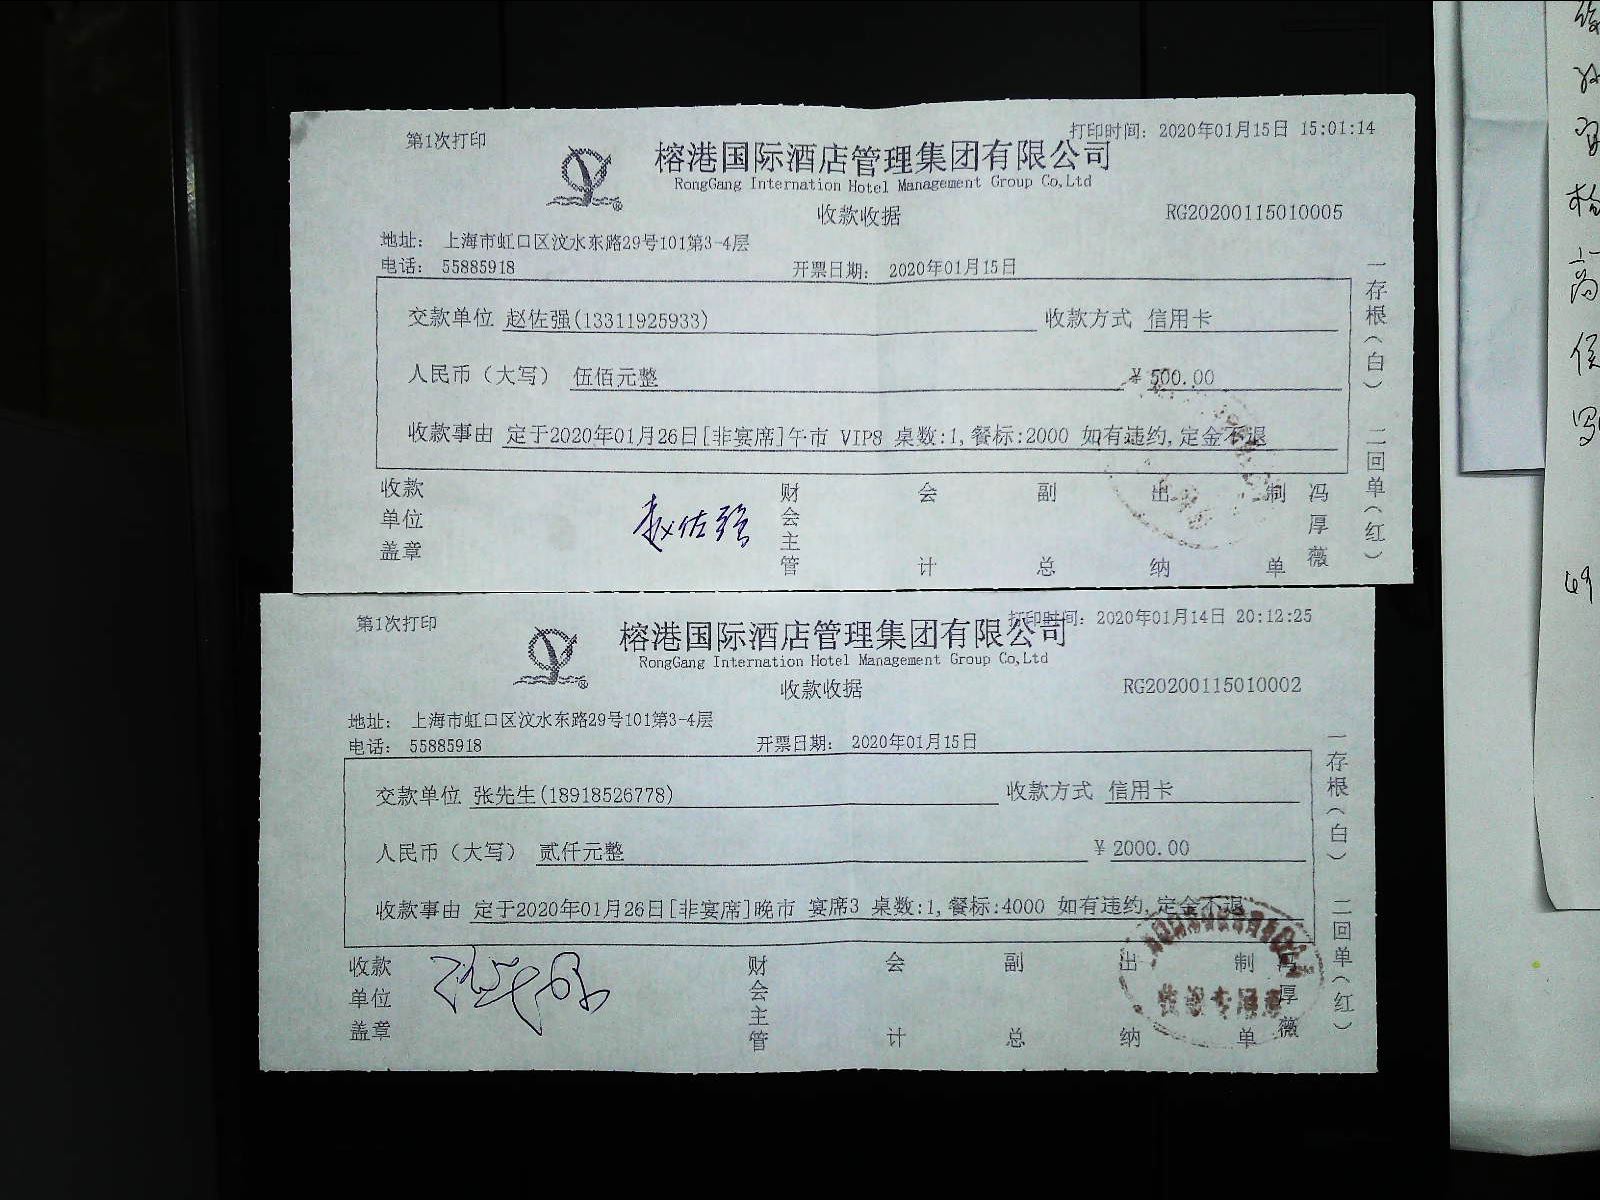 第1次打印
打印时间: 2020年01月15日 15:01:14
榕港国际酒店管理集团有限公司
RongGang Internation Hotel Management Group Co,Ltd
收款收据
RG20200115010005
地址: 上海市虹口区汶水东路29号101第3-4层
电话: 55885918
开票日期: 2020年01月15日
交款单位 赵佐强(13311925933)
收款方式 信用卡
人民币（大写） 伍佰元整
¥ 500.00
收款事由 定于2020年01月26日[非宴席]午市 VIP8 桌数:1,餐标:2000 如有违约,定金不退
收款单位盖章
赵佐强
财会主管
会计
副总
出纳
制单
冯厚薇
一存根(白)
二回单(红)
第1次打印
打印时间: 2020年01月14日 20:12:25
榕港国际酒店管理集团有限公司
RongGang Internation Hotel Management Group Co,Ltd
收款收据
RG20200115010002
地址: 上海市虹口区汶水东路29号101第3-4层
电话: 55885918
开票日期: 2020年01月15日
交款单位 张先生(18918526778)
收款方式 信用卡
人民币（大写） 贰仟元整
¥ 2000.00
收款事由 定于2020年01月26日[非宴席]晚市 宴席3 桌数:1,餐标:4000 如有违约,定金不退
收款单位盖章
财会主管
会计
副总
出纳
制单
冯厚薇
一存根(白)
二回单(红)